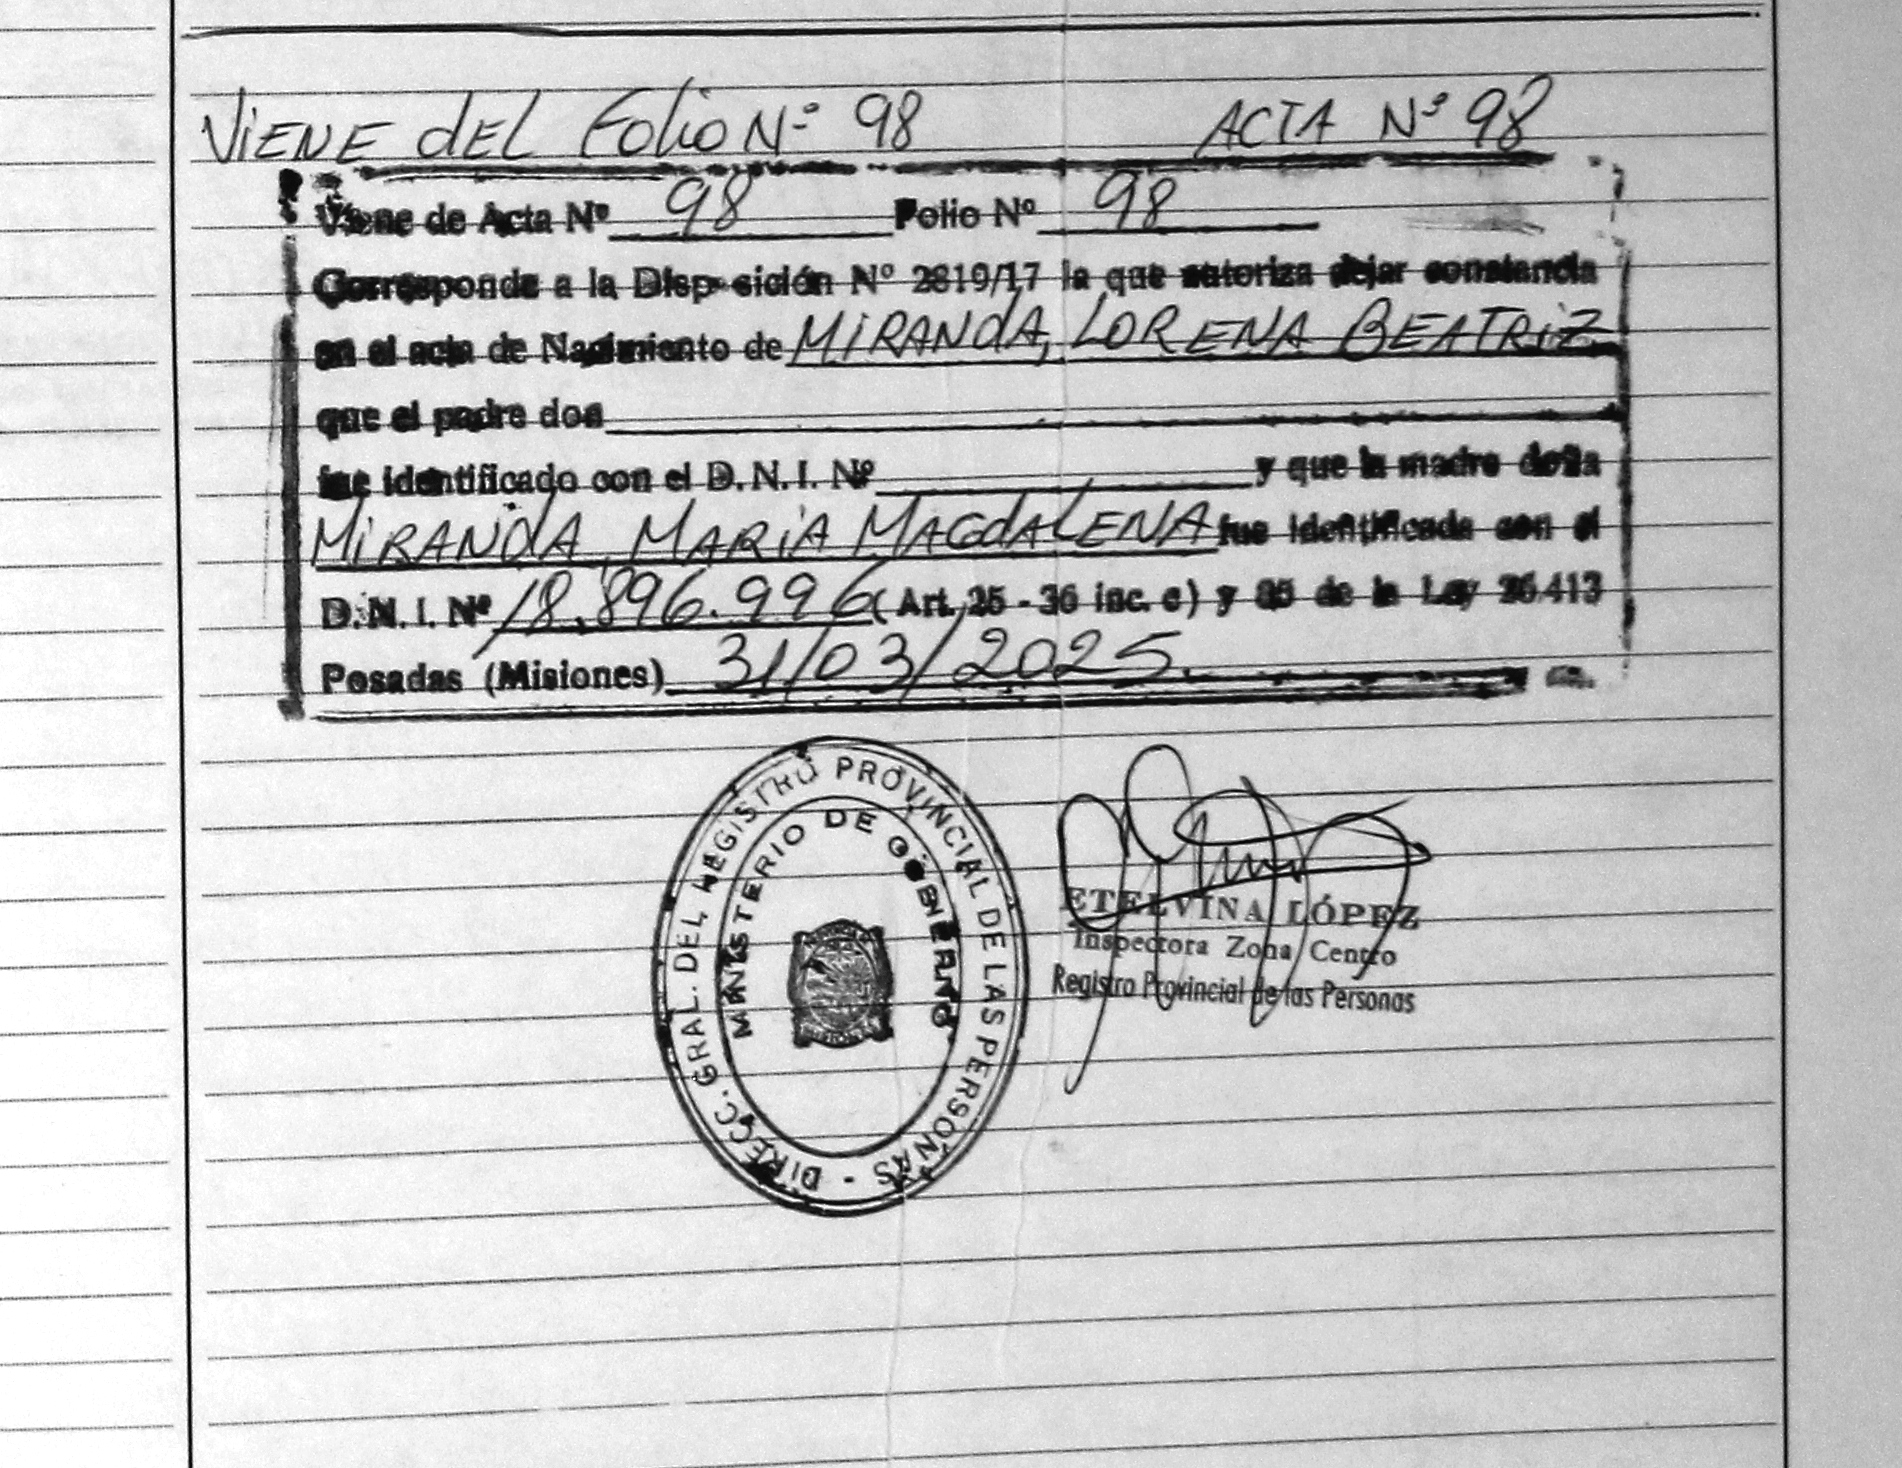 ViENE dEL Folio Nº 98 ACTA Nº 98
Viene de Acta Nº 98 Folio Nº 98
Corresponde a la Disposición Nº 2819/17 la que autoriza dejar constancia
en el acta de Nacimiento de MiRANdA, LORENA BEATRiZ
que el padre don
fue identificado con el D.N.I. Nº y que la madre doña
MiRANdA, MARiA MAGdALENA fue identificada con el
D.N.I. Nº 18.896.996 (Art. 25 - 36 inc. c) y 85 de la Ley 26.413
Posadas (Misiones) 31/03/2025.
DIRECC. GRAL. DEL REGISTRO PROVINCIAL DE LAS PERSONAS -
MINISTERIO DE GOBIERNO
ETELVINA LÓPEZ
Inspectora Zona Centro
Registro Provincial de las Personas